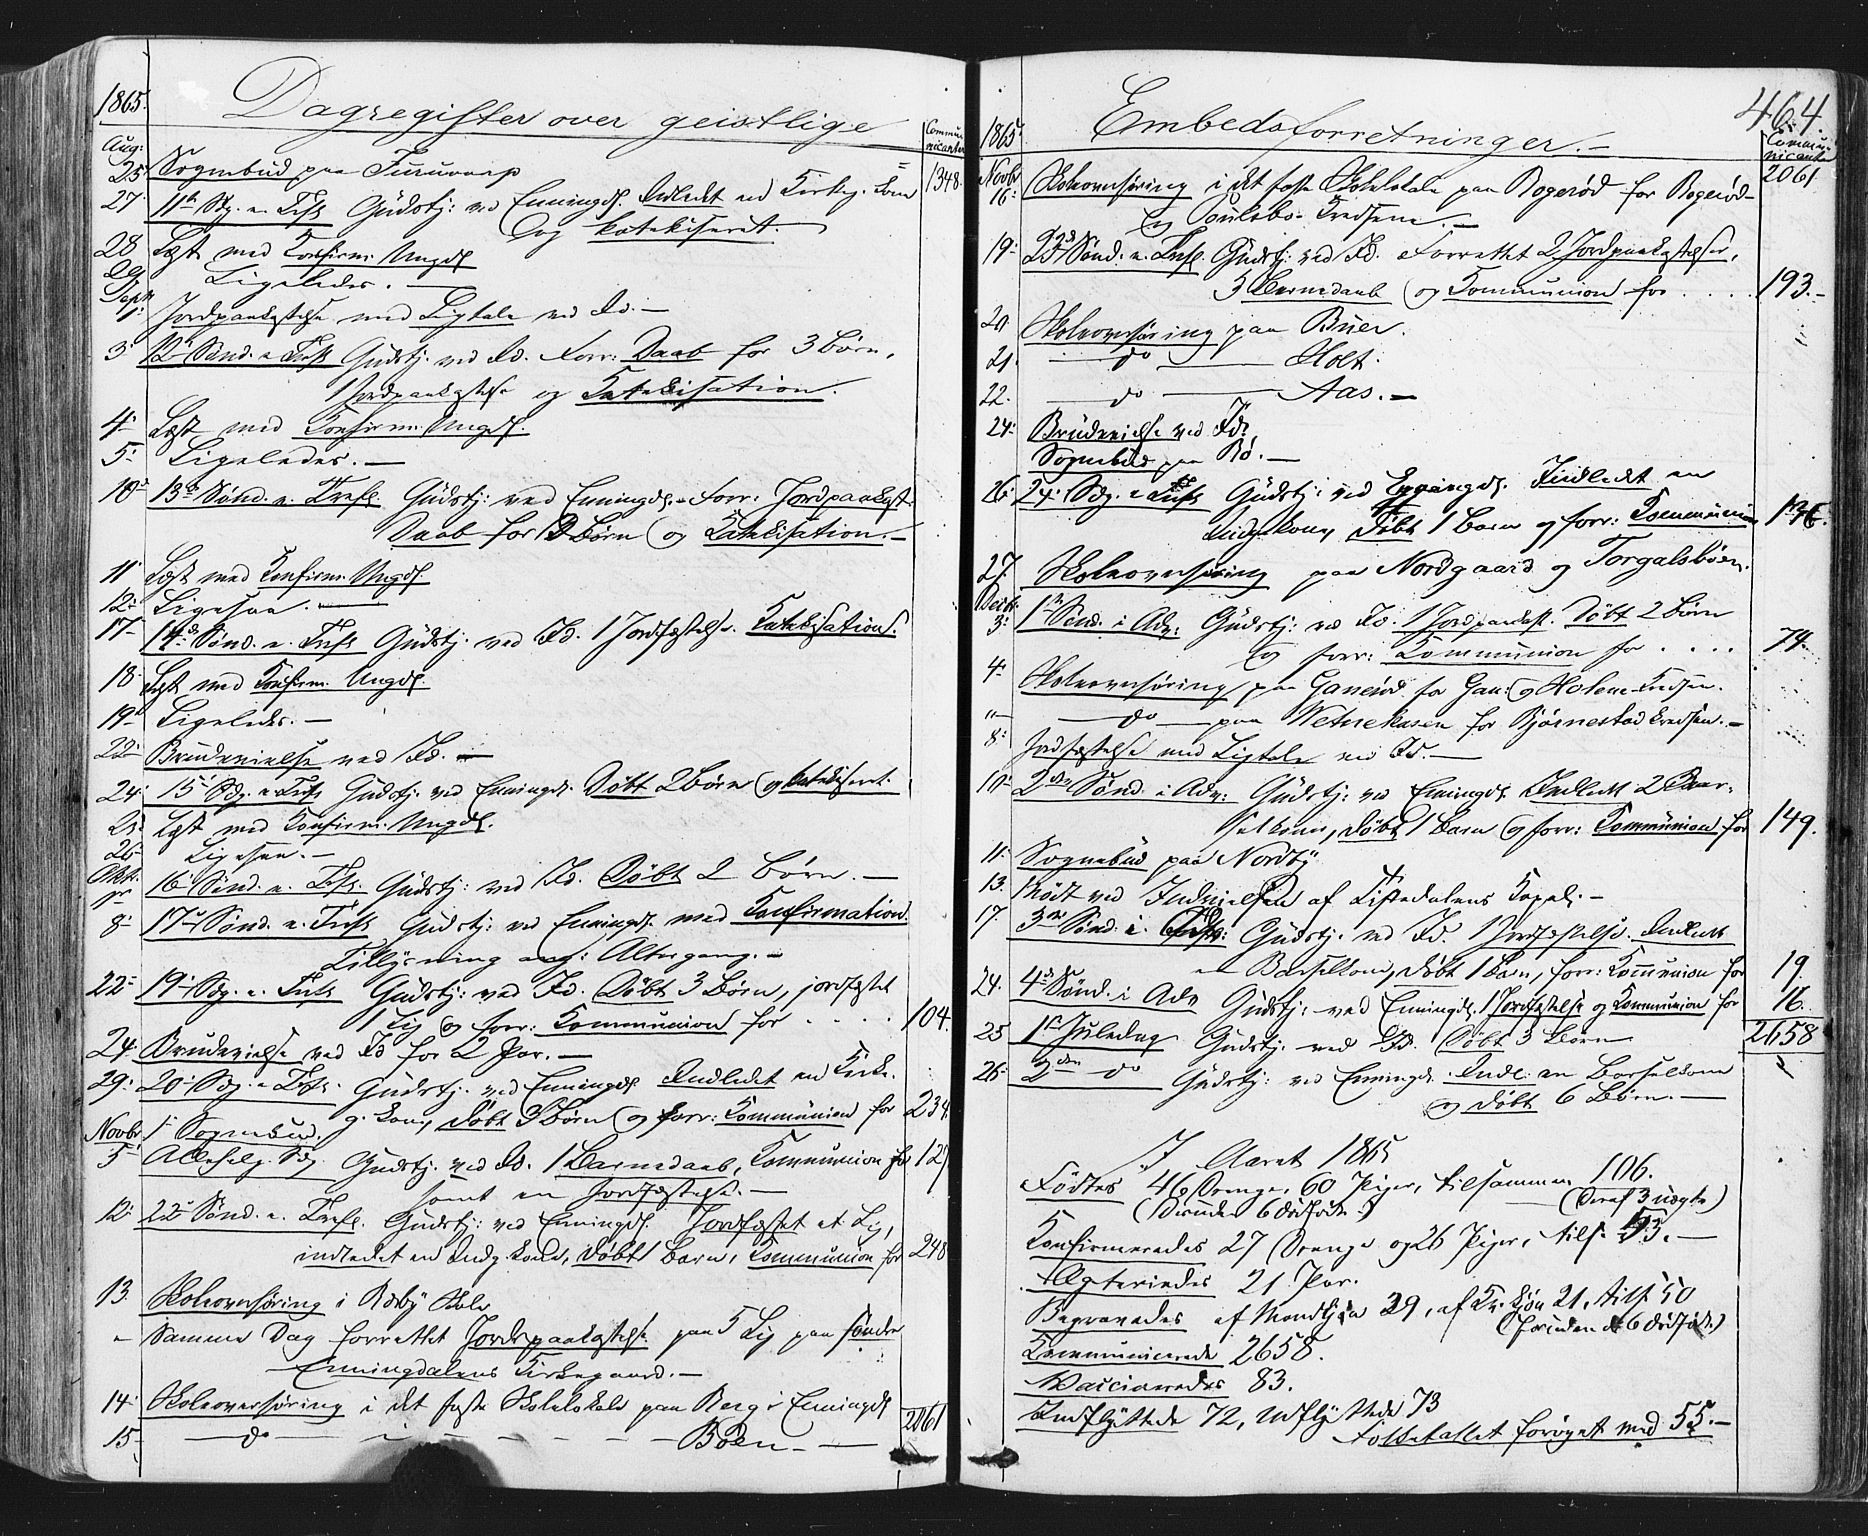 1865. Dagregister over geistlige
Communicanter
Aug:
25 Sognebud paa Furuvarp 1348.
27. 11te Sdg. e. Tref. Gudstj: ved Enningd. Indledet en Kirkeg. Kone
og katekiseret.
28 Læst med Konfirm. Ungd.
29 Ligeledes.
Septr
1. Jordpaakastelse med Ligtale ved Id.
3 12te Sønd. e Tref. Gudstj: ved Id. Forr: Daab for 3 Børn,
1 Jordpaakastelse og Katekisation.
4. Læst med Konfirm. Ungd.
5. Ligeledes.
10. 13de Sønd. e. Tref. Gudstj: ved Enningd. Forr: Jordpaakast.
Daab for 2 Børn og Katekisation.
11 Læst med Konfirm. Ungd.
12. Ligesaa.
17 14de Sønd. e. Tref. Gudstj: ved Id. 1 Jordfæstelse. Katekisation.
18 Læst med Konfirm. Ungd.
19 Ligeledes.
22. Brudevielse ved Id.
24. 15de Sdg. e. Tref. Gudstj. ved Enningd. Døbt 2 Børn og katekiseret.
25 Læst med Konfirm. Ungd.
26 Ligesaa.
Oktbr
1 16de Sønd. e. Tref. Gudstj: ved Id. Døbt 2 Børn.
8 17de Sønd. e. Tref. Gudstj: ved Enningd. med Konfirmation.
Tillysning ang: Altergang.
22 19de Sdg. e. Tref. Gudstj: ved Id. Døbt 3 Børn, jordfæstet
1 Lig og forr: Kommunion for 104.
24. Brudevielse ved Id for 2 Par.
29. 20de Sdg. e Tref. Gudstj. ved Enningd. Indledet en Kirke-
g. Kone, døbt 3 Børn og forr: Kommunion for 234.
Novbr 1 Sognebud.
5 Allehelg. Sdg. Gudstj. ved Id. 1 Barnedaab, Kommunion for 127
samt en Jordfæstelse.
12. 22de Sønd. e. Tref. Gudstj: ved Enningd. Jordfæstet et Lig,
indledet en Indg. Kone, døbt 1 Barn, Kommunion for 248
13 Skoleoverhøring i Røsby Skole
" Samme Dag forrettet Jordspaakastelse paa 5 Lig paa søndre
Enningdalens Kirkegaard.
14. Skoleoverhøring i det faste Skolelokale paa Berg i Enningd 2061
15 do Bøen
464.
1865. Embedsforretninger.
Communicanter
Novbr 2061.
16. Skoleoverhøring i det faste Skolelokale paa Bogerød for Bogerød-
og Poulsbo-Kredsene.
19. 23de Sønd. e. Tref. Gudstj: ved Id. Forrettet 2 Jordpaakastelser,
3 Barnedaab og Kommunion for 193.
20. Skoleoverhøring paa Buer.
21. do Holt.
22. do Aas.
24. Brudevielse ved Id.
Sognebud paa Bø.
26. 24. Sdg. e Tref. Gudstj: ved Enningd. Indledet en
Indg. Kone, døbt 1 Barn og forr: Kommunion 136.
27. Skoleoverhøring paa Nordgaard og Torgalsbøen.
Decbr.
3. 1ste Sønd. i Adv: Gudstj: ved Id. 1 Jordpaakast. Døbt 2 Børn
og forr: Kommunion for 74.
4. Skoleoverhøring paa Ganerød for Gan: og Holene-Kredsen.
" do paa Wetnekasen for Bjørnestad Kredsen.
8. Jordfæstelse med Ligtale ved Id.
10. 2den Sønd. i Adv: Gudstj: ved Enningd. Indledt 2 Bar-
selkoner, døbt 1 Barn og forr: Kommunion for 149.
11. Sognebud paa Nordby
13. Mødt ved Indvielsen af Tistedalens Kapel.
17. 3die Sønd. i Adv: Gudstj. ved Id. 1 Jordfæstelse. Indledt
en Barselkone, døbt 1 Barn, forr: Kommunion for 19.
24. 4de Sønd. i Adv Gudstj: ved Enningd. 1 Jordfæstelse og Kommunion for 16.
25 1ste Juledag Gudstj. ved Id. Døbt 3 Børn 2658
26. 2den do Gudstj: ved Enningd. Indl. en Barselkone
og døbt 6 Børn.
I Aaret 1865
Fødtes 46 Drenge, 60 Piger, tilsammen 106.
(Desuden 6 dødfødte.) (Deraf 3 uægte)
Konfirmeredes 27 Drenge og 26 Piger, tils. 53.
Ægteviedes 21 Par.
Begravedes af Mandkjøn 29, af Kv. Kjøn 21, tils. 50
(foruden de 6 dødfødte)
Communicerede 2658.
Vaccineredes 83.
Indflyttede 72, Udflyttede 73
Folketallet forøget med 55.